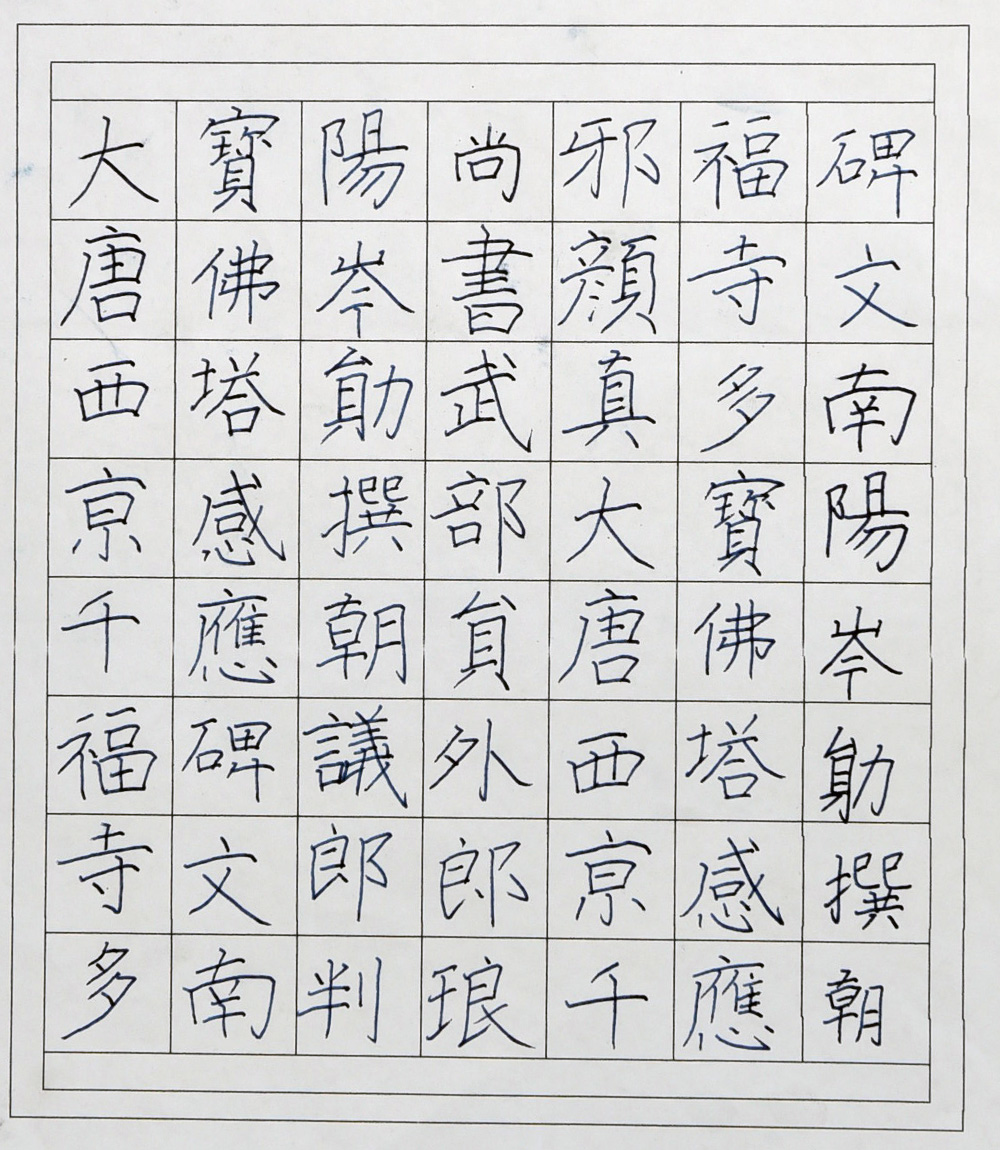 大唐西亰千福寺多
寶佛塔感應碑文南
陽岑勛撰朝議郎判
尚書武部貟外郎琅
邪顔真大唐西亰千
福寺多寶佛塔感應
碑文南陽岑勛撰朝